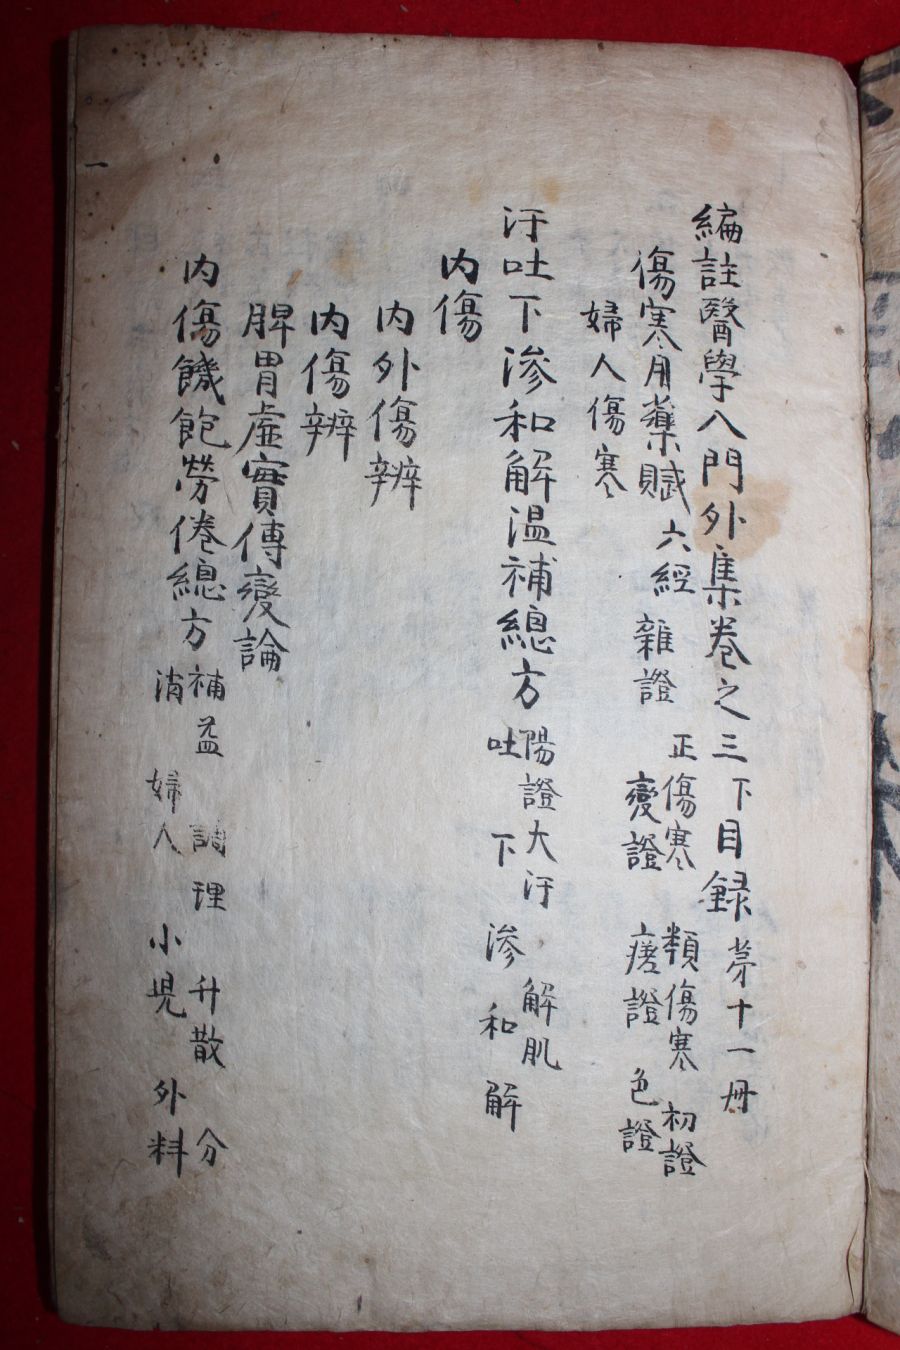 編註醫學入門外集卷之三下目録 苐十一冊
傷寒用藥賦 六經 正傷寒 類傷寒 初證
雜證 變證 瘥證 色證
婦人傷寒
汗吐下滲和解温補總方 陽證大汗 解肌
吐 下 滲 和解
内傷
内外傷辨
内傷辨
脾胃虛實傳變論
内傷饑飽勞倦總方 補益 調理 升散 分
消 婦人 小児 外料
一